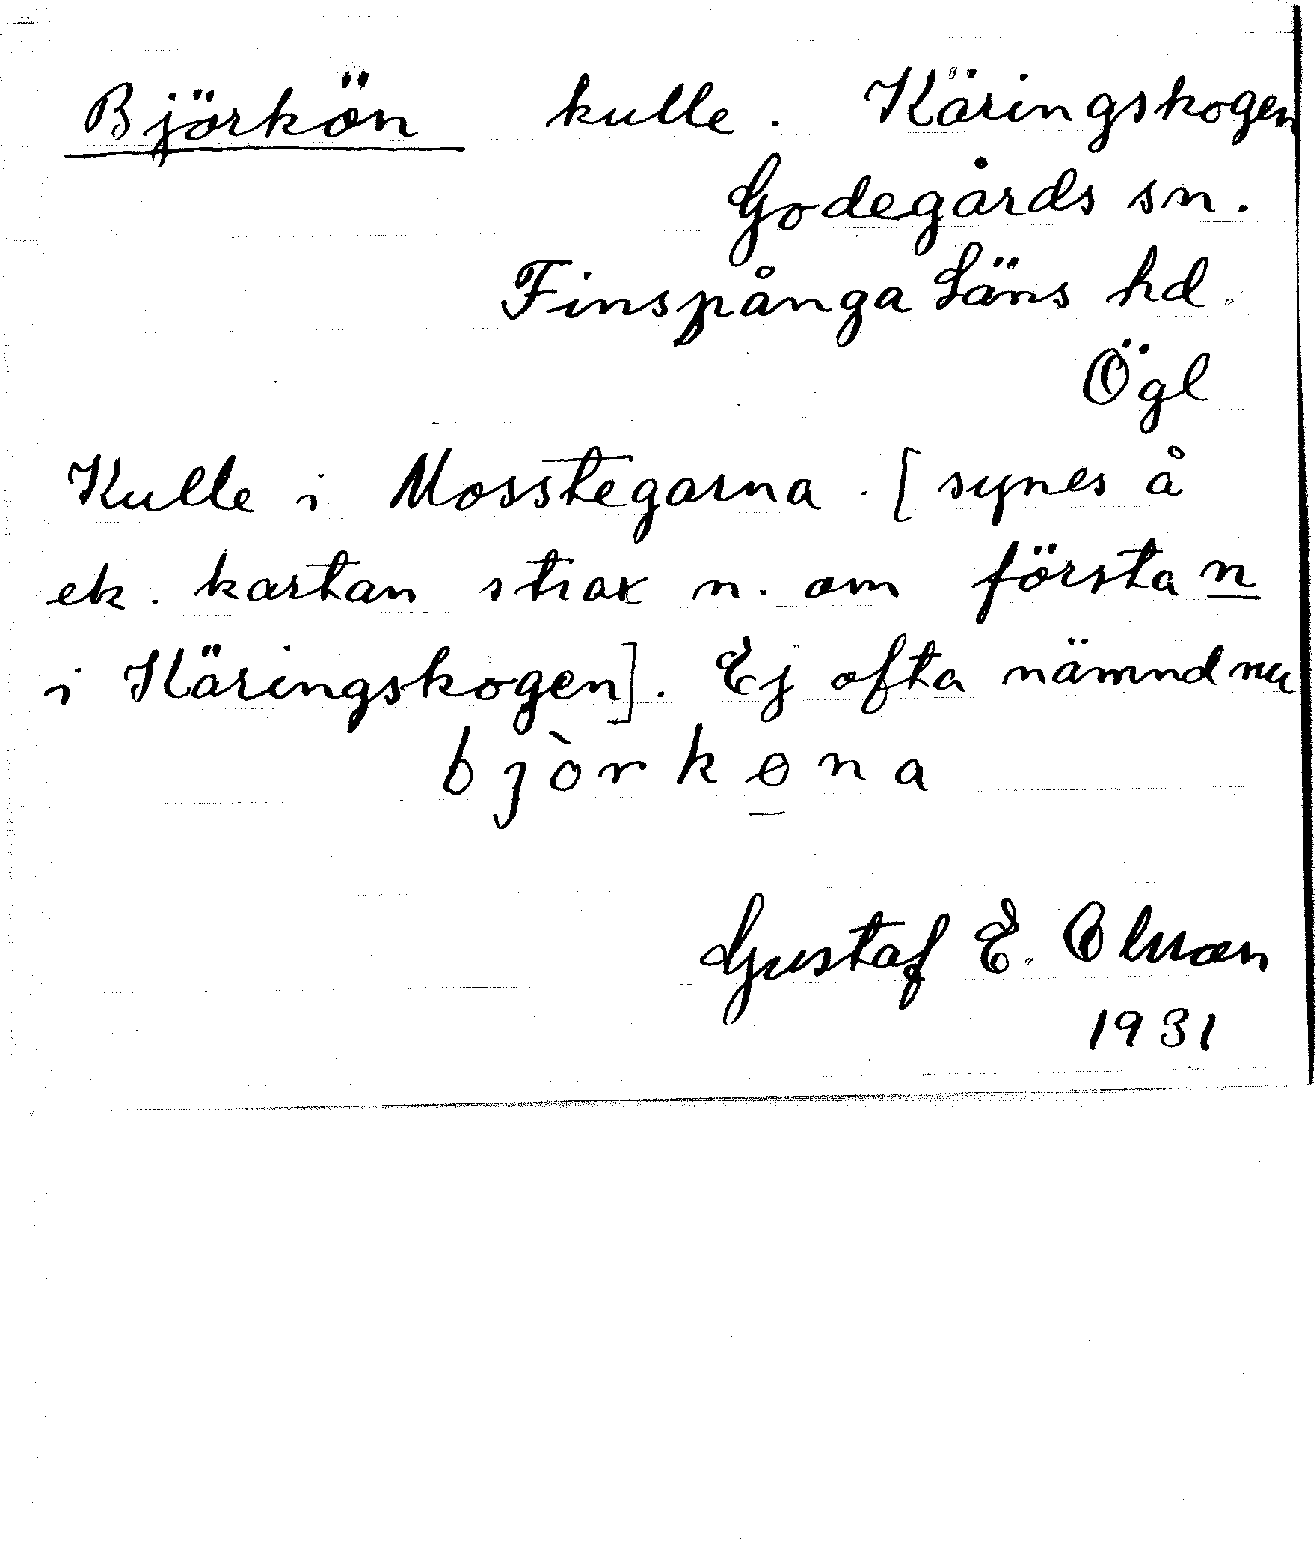 Björkön kulle. Käringskogen
Godegårds sn.
Finspånga Läns hd.
Ögl
Kulle i Mosstegarna. [synes å
ek. kartan strax n. om första n
i Käringskogen]. Ej ofta nämnd nu
bjòrkøna
Gustaf E. Olsson
1931